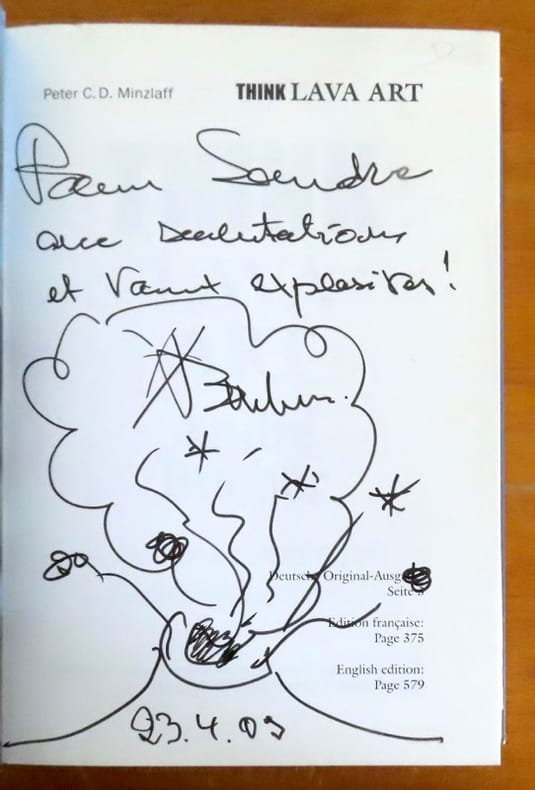 Peter C. D. Minzlaff THINK LAVA ART
Pour Sandra
avec salutations
et vœux explosives!
Deutsche Original-Ausg
Seite 5
Edition française:
Page 375
English edition:
Page 579
23.4.09